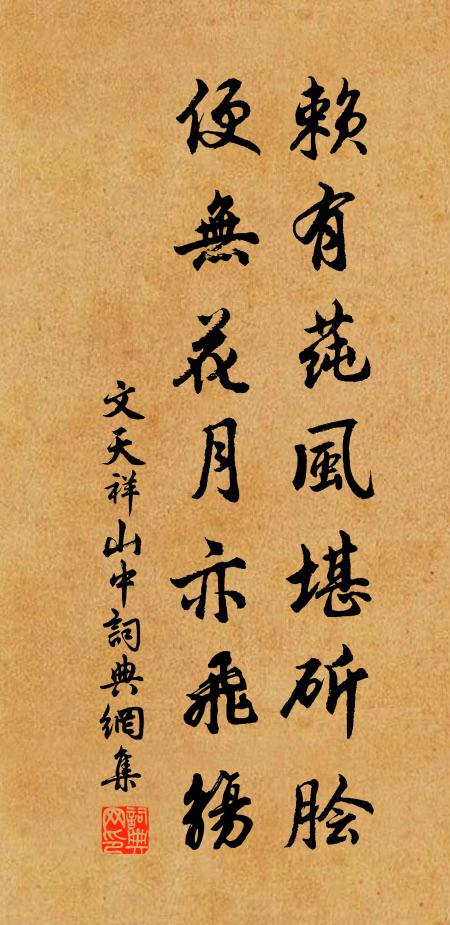 賴有莼風堪斫脍
便無花月亦飛觴
文天祥山中詞典網集
詞典网印